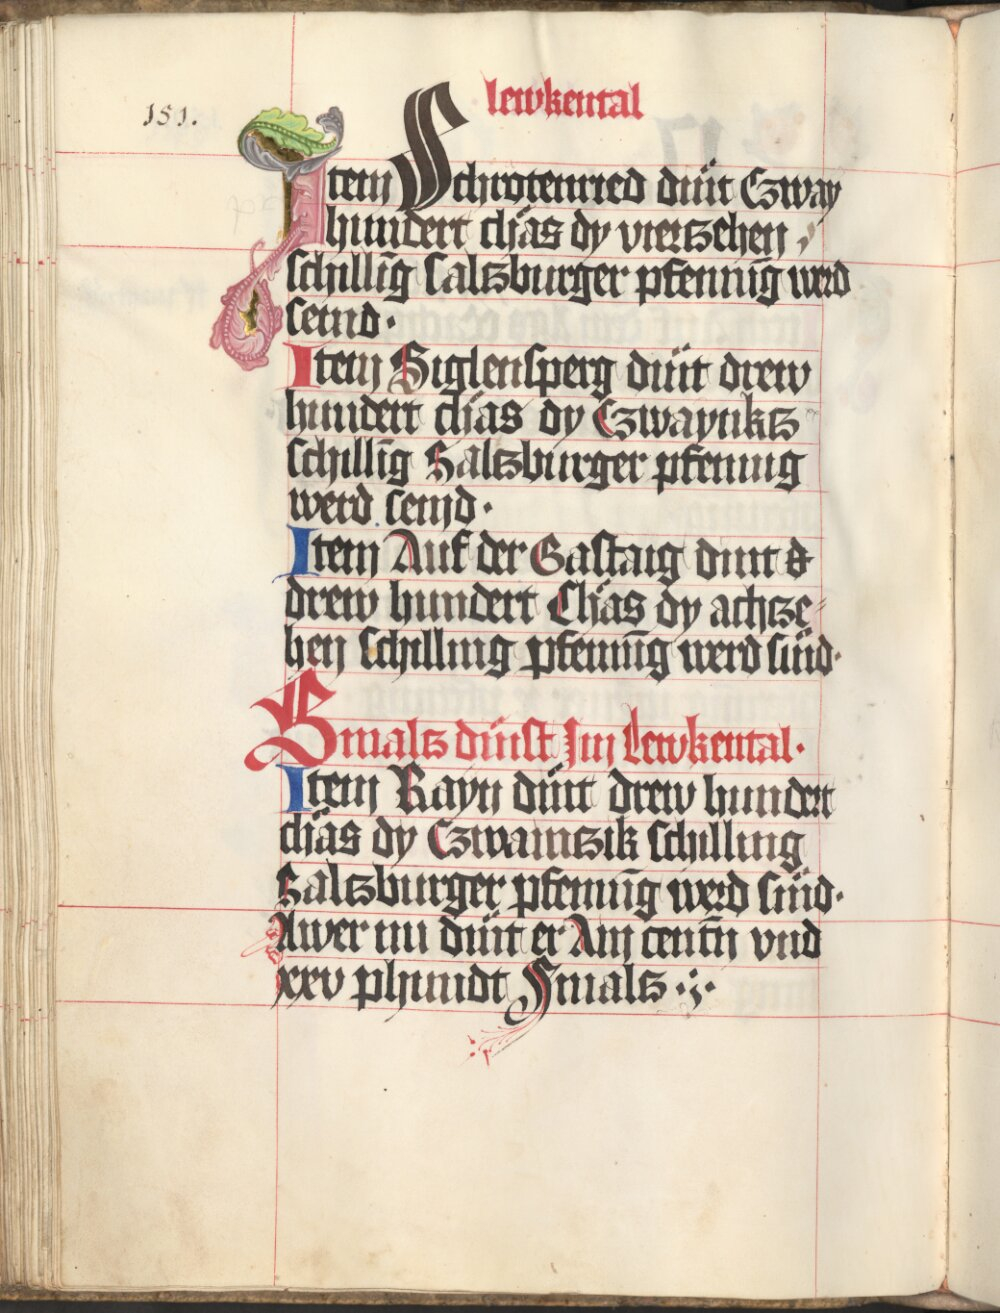 lewkental
151.
Item Schrotenried diint Czway
hundert chäs dy vierczehen
schilling Salczburger pfenning werd
seind.
Item Siglensperg diint drew
hundert chäs dy Czwaynkcz
schillīg Salczburger pfennig
werd seind.
Item Auf der Gastaig diint
drew hundert Chäs dy achcze-
hen schilling pfennīg werd sind.
Smalcz dinst Jm Lewkental.
Item Rayn diint drew hundert
chäs dy Czwainczik schilling
Salczburger pfennīg werd sind.
Awer nu diint er Am centn vnd
xxv phundt Smalcz